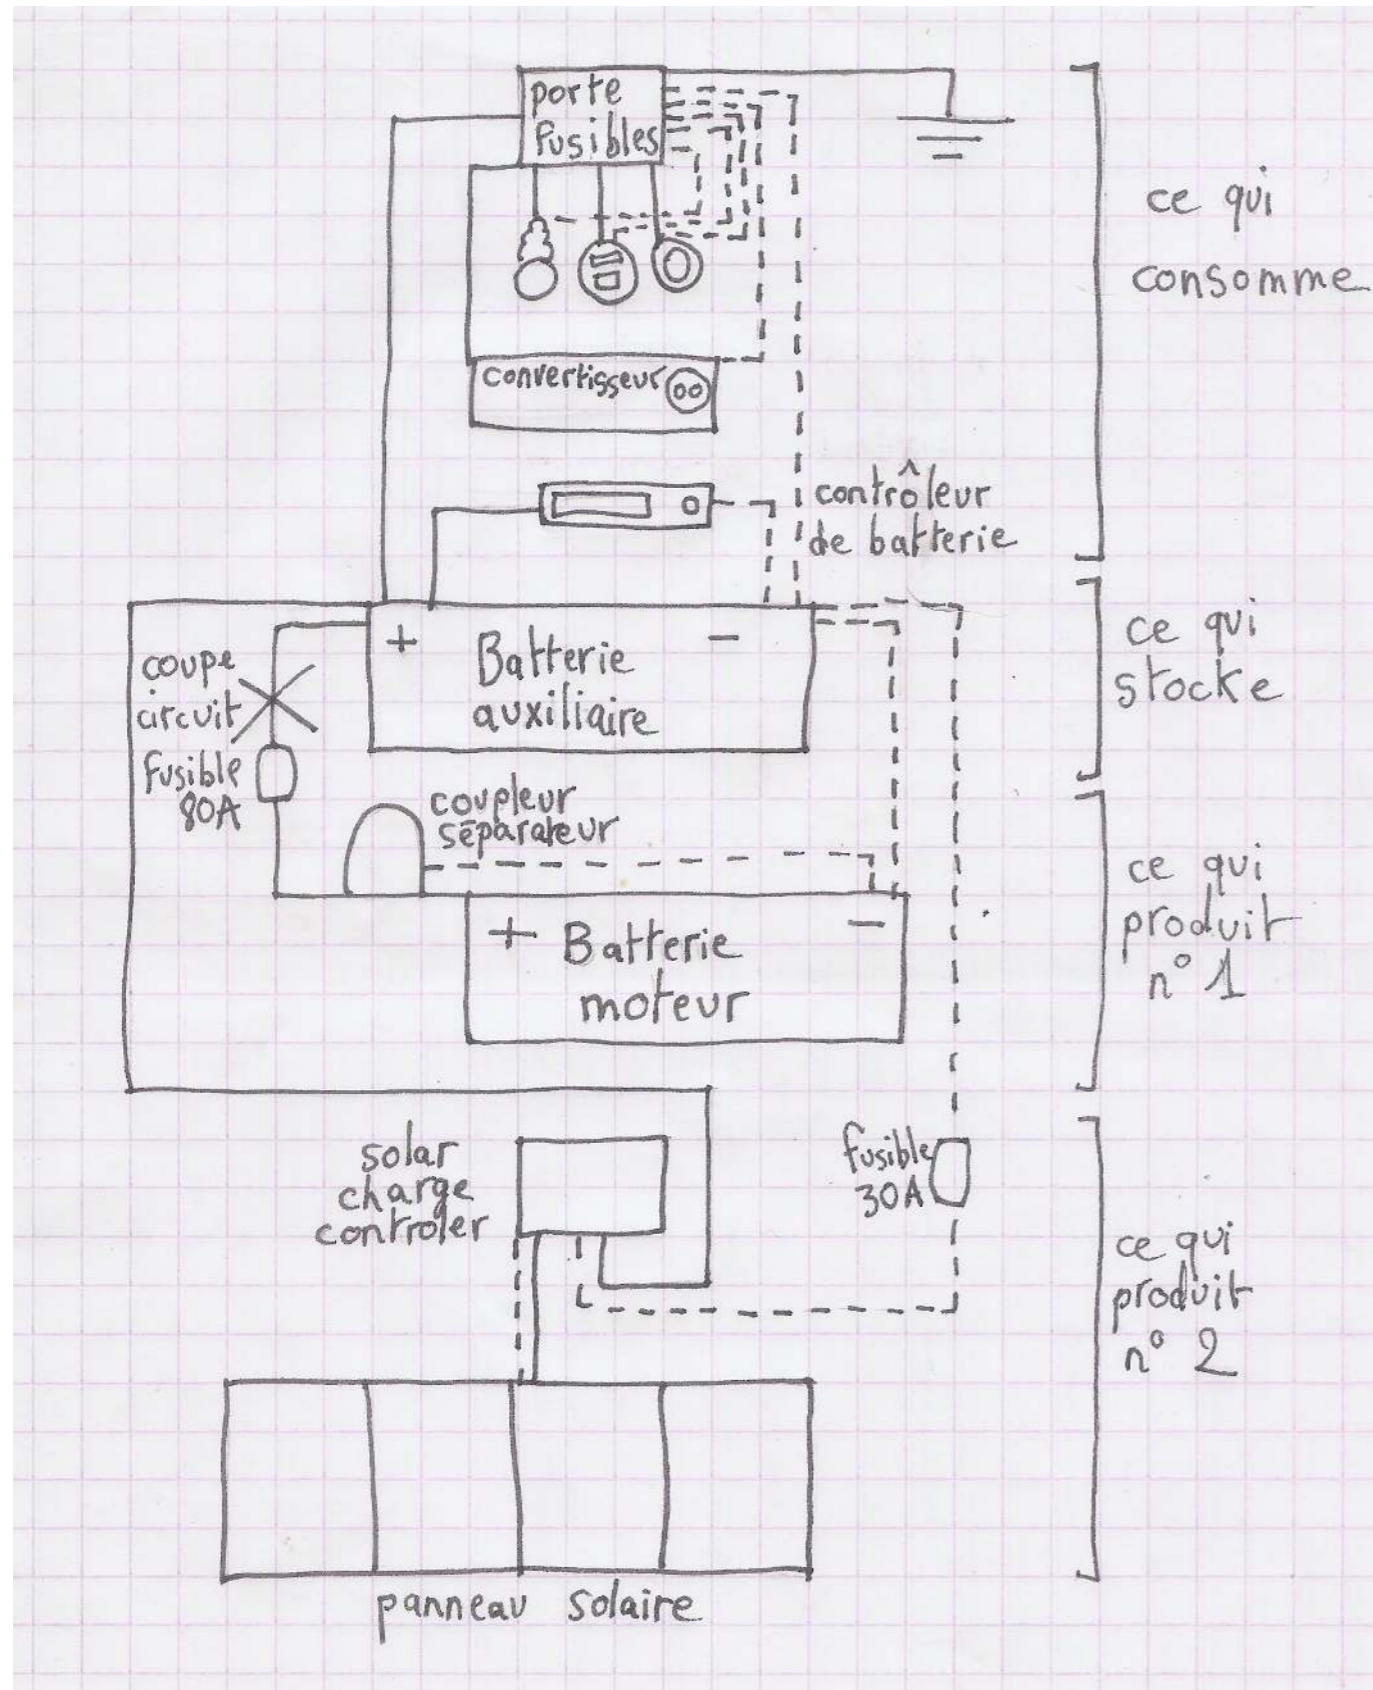 porte
fusibles
ce qui
consomme
convertisseur
contrôleur
de batterie
+
Batterie
auxiliaire
-
ce qui
stocke
coupe
circuit
fusible
80A
coupleur
séparateur
+
Batterie
moteur
-
ce qui
produit
n° 1
solar
charge
controler
fusible
30A
ce qui
produit
n° 2
panneau solaire